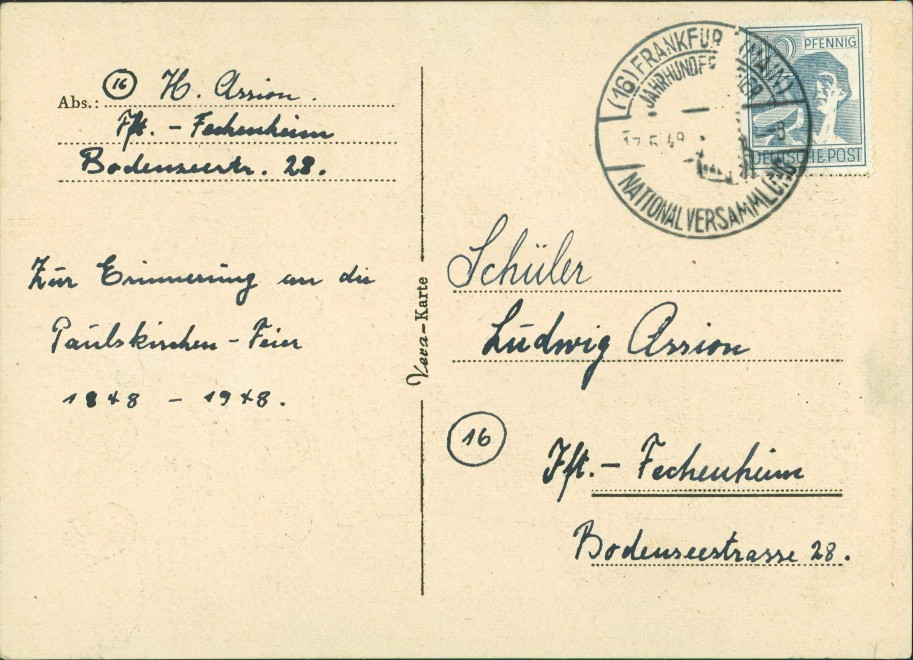 Abs.: (16) H. Assion.
Fft. - Fechenheim
Bodenseestr. 28.
Zur Erinnerung an die
Paulskirchen-Feier
1848 - 1948.
Vera-Karte
(16) FRANKFUR (MAIN)
JAHRHUNDERTFEIER
NATIONALVERSAMMLUNG
PFENNIG
DEUTSCHE POST
Schüler
Ludwig Assion
16
Fft. - Fechenheim
Bodenseestrasse 28.